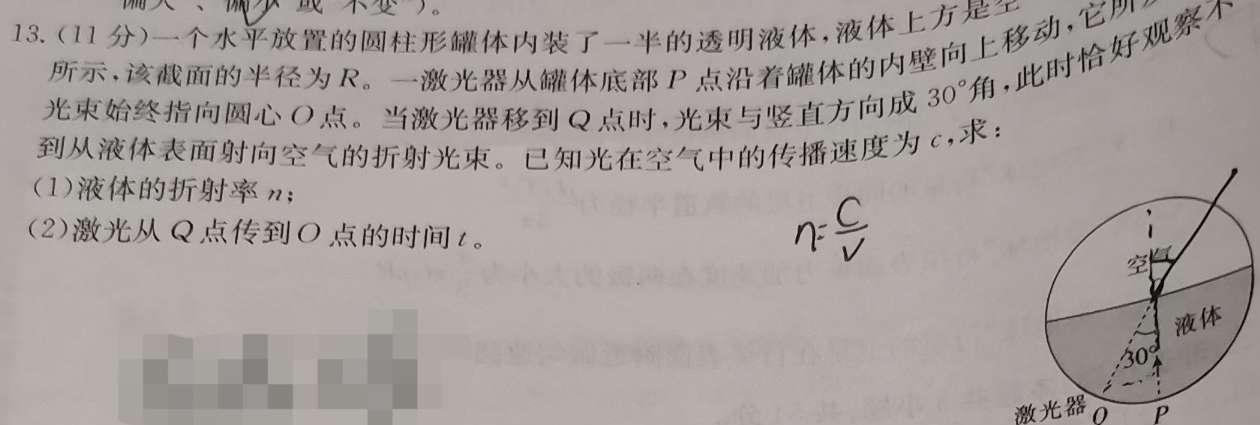 偏大 、偏小 或 不变”)。
13.(11 分)一个水平放置的圆柱形罐体内装了一半的透明液体,液体上方是空
所示,该截面的半径为 R。一激光器从罐体底部 P 点沿着罐体的内壁向上移动,它所
光束始终指向圆心 O 点。当激光器移到 Q 点时,光束与竖直方向成 30°角,此时恰好观察不
到从液体表面射向空气的折射光束。已知光在空气中的传播速度为 c,求:
(1)液体的折射率 n;
(2)激光从 Q 点传到 O 点的时间 t。
n=c/v
空气
液体
30°
激光器 Q P